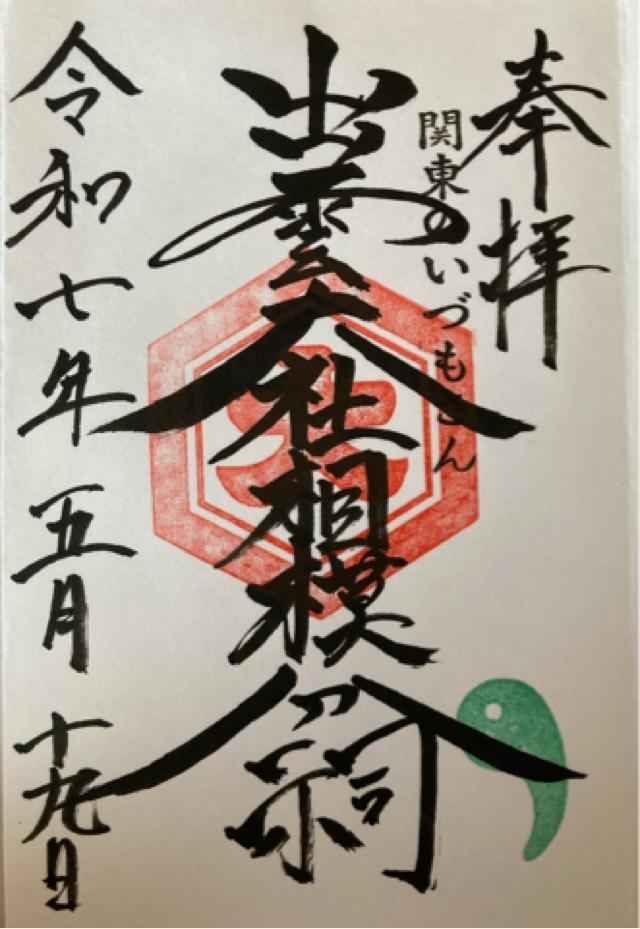 奉拝
関東のいづもさん
出雲大社相模分祠
令和七年五月十九日